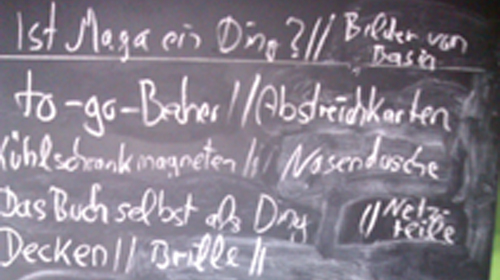 Ist Maga ein Ding?// Bilder von
Basia
to-go-Becher // Abstreichkarten
Kühlschrankmagneten // Nasendusche
Das Buch selbst als Ding // Netz-
teile
Decken // Brille //